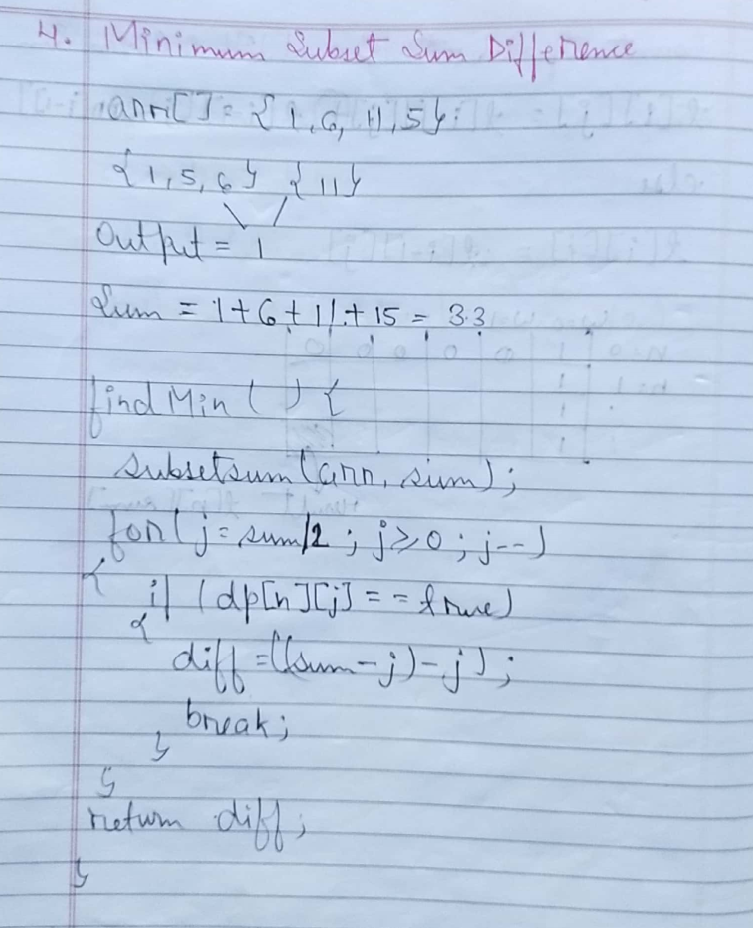 4. Minimum Subset Sum Difference
arr[] = {1, 6, 11, 5};
{1, 5, 6} {11}
Output = 1
Sum = 1+6+11+15 = 33
findMin () {
subsetsum (arr, sum);
for (j = sum/2 ; j ≥ 0 ; j--)
{
if (dp[n][j] == true)
{
diff = ((sum-j)-j);
break;
}
}
return diff;
}